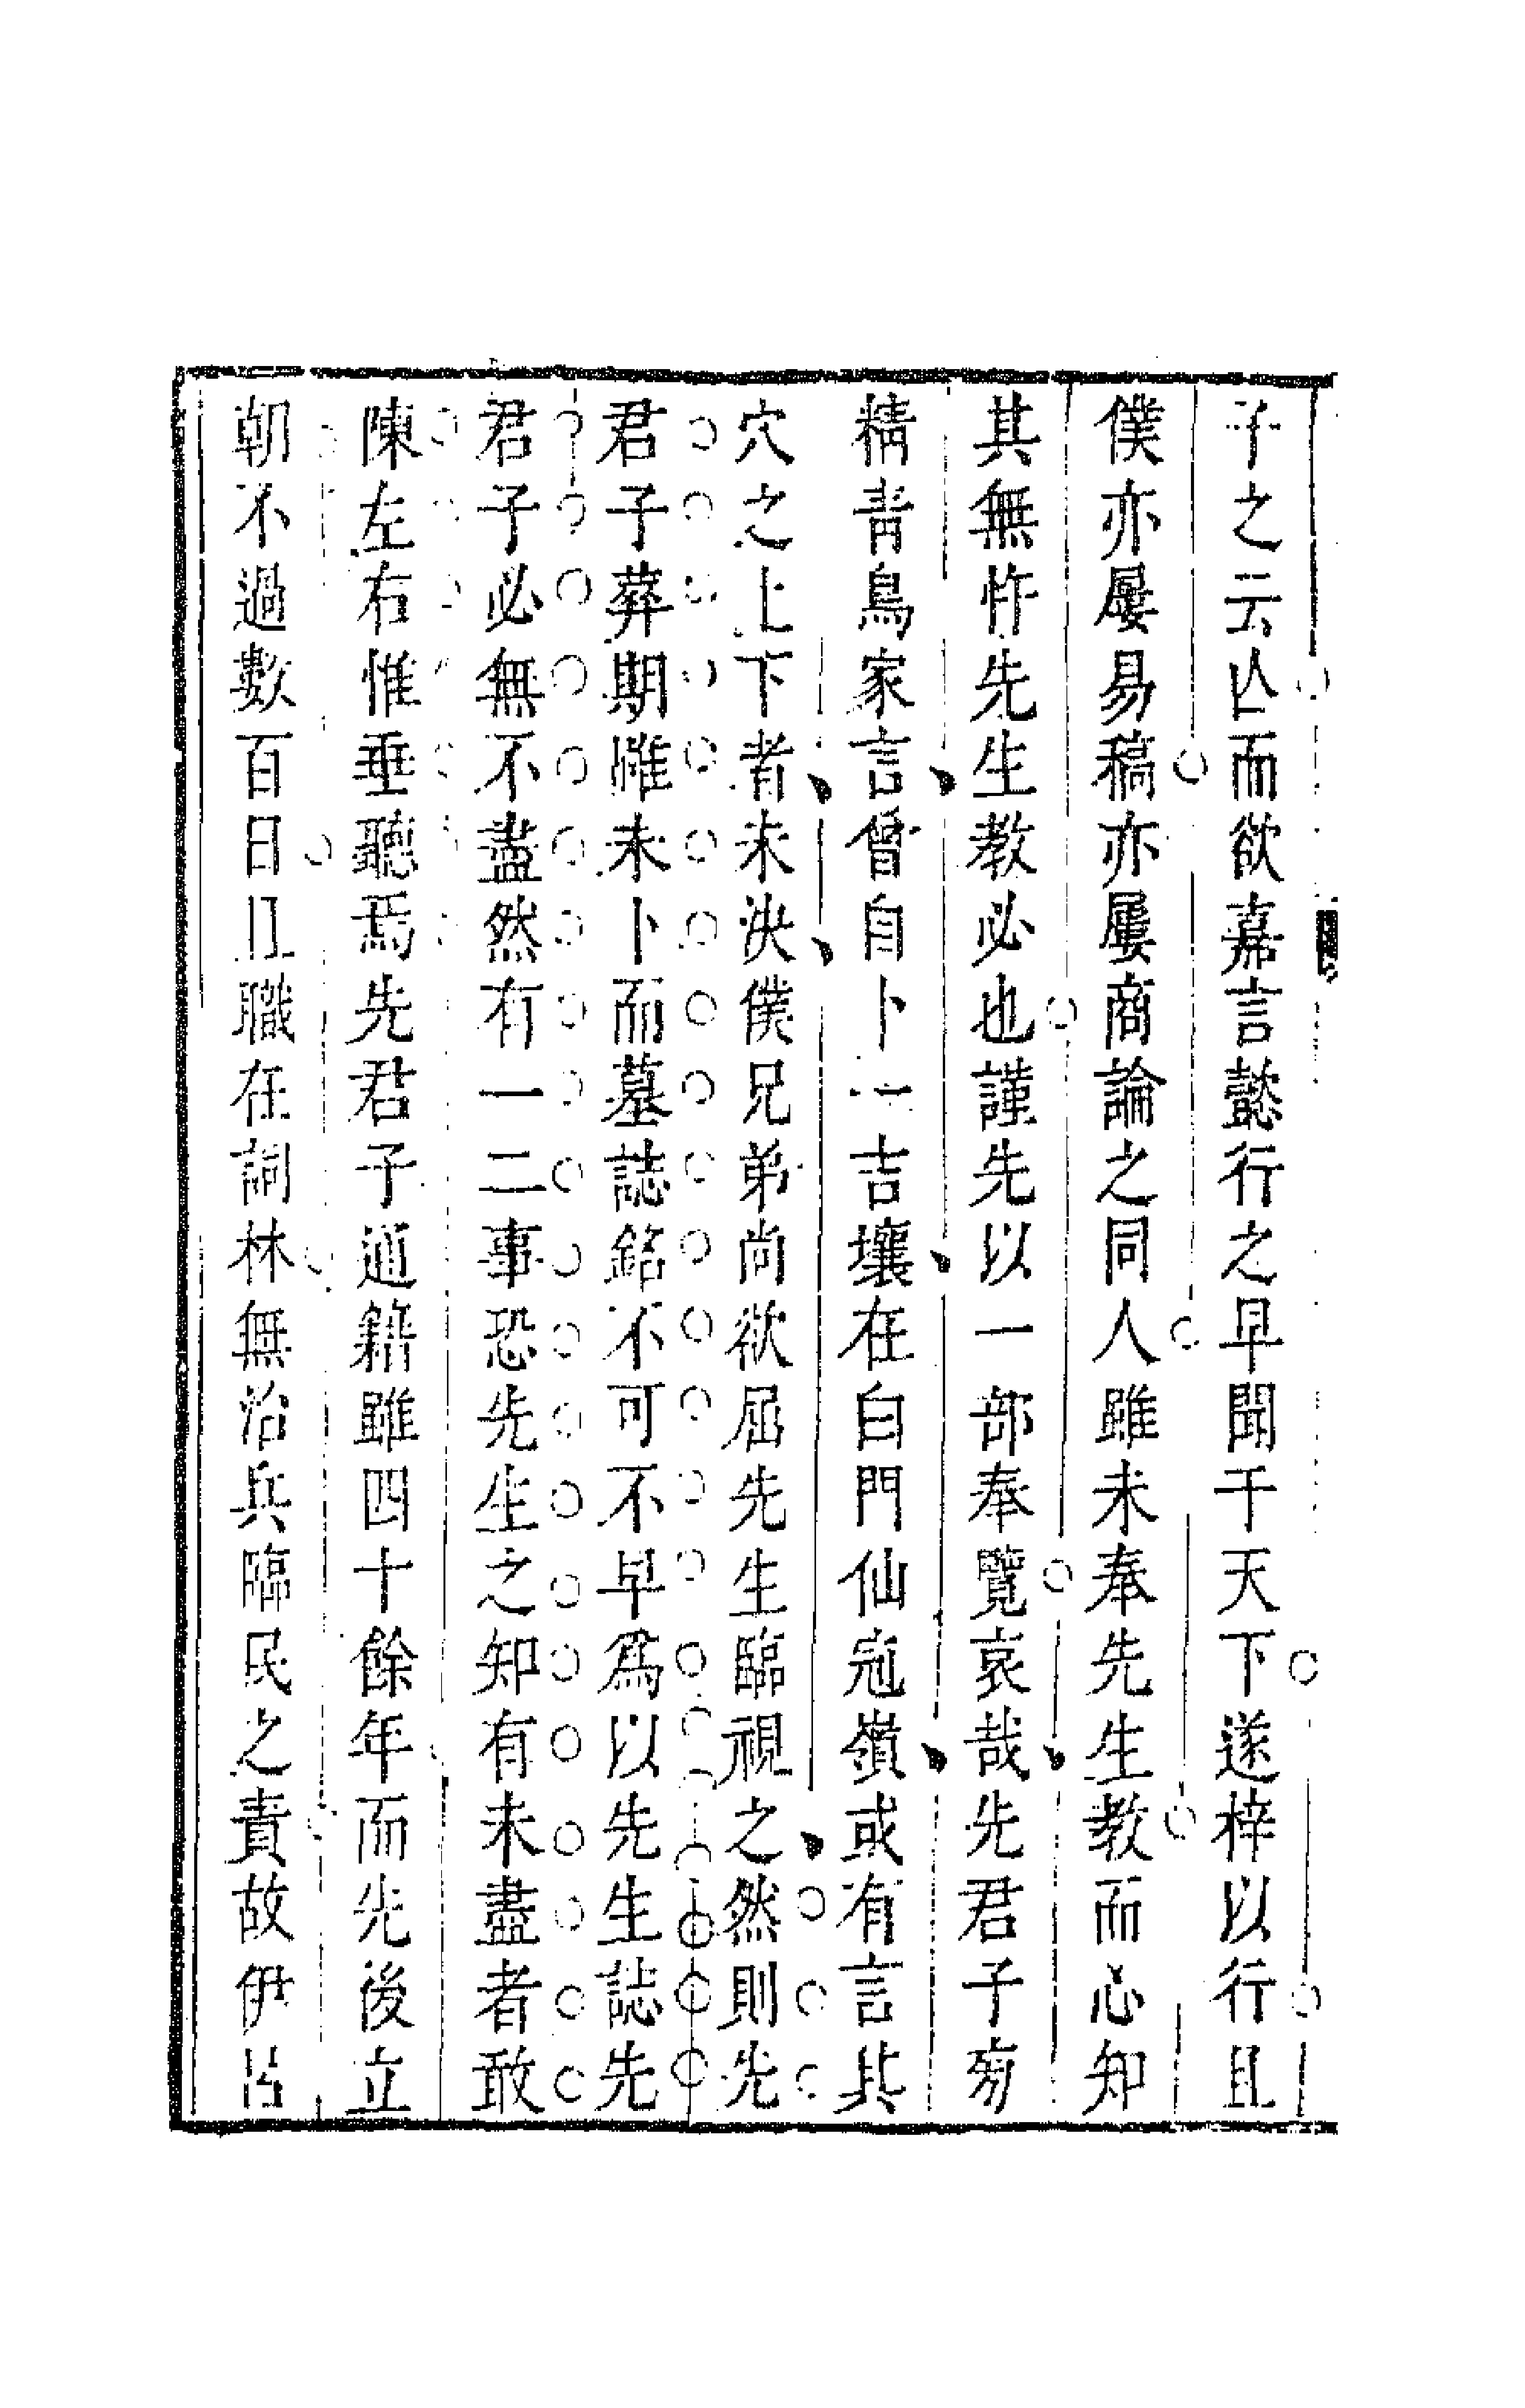 子之云亾而欲嘉言懿行之早聞于天下遂梓以行且
僕亦屢易稿亦屢商論之同人雖未奉先生教而心知
其無忤先生教必也謹先以一部奉覽哀哉先君子㫄
精青鳥家言曾自卜一吉壤在白門仙冦嶺或有言其
穴之上下者未決僕兄弟尚欲屈先生臨視之然則先
君子葬期惟未卜而墓誌銘不可不早爲以先生誌先
君子必無不盡然有一二事恐先生之知有未盡者敢
陳左右惟垂聽焉先君子通籍雖四十餘年而先後立
朝不過數百日且職在詞林無治兵臨民之責故伊呂